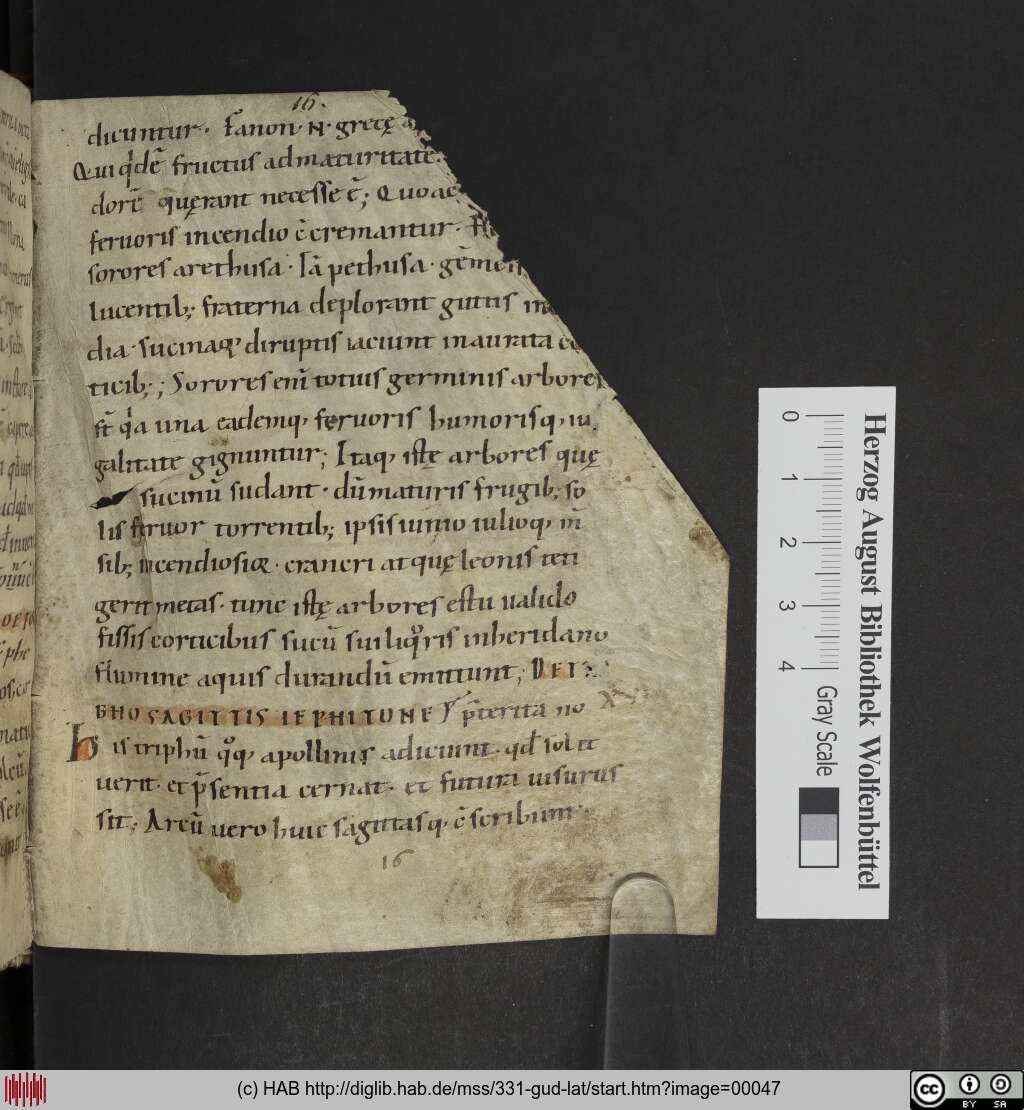 16.
dicuntur· Fanon·N·grecę
Qui q̇dē fructus admaturitatē
dorē quęrant necesse ē; Quoac
feruoris incendio c̄cremantur·
sorores arethusa· Lāpethusa· gēmen
lucentib; fraterna deplorant guttis in
dia· sucinaq; diruptis iaciunt inaurata co
ticib;; Sorores enī totius germinis arbores
st̄ q̇a una eademq; feruoris humorisq; iu
galitate gignuntur; Itaq; istę arbores quę
sucinū sudant· dū maturis frugib; so
lis feruor torrentib; ipsis iunio iulioq; m̄
sib; incendiosiꝗ· crancri atquę leonis teti
gerit metas· tunc istę arbores estu ualido
fissis corticibus sucū sui liq̊ris inheridano
flumine aquis durandū emittunt; DETR
BHO SAGITTIS IEPHITUNE p̄terita no
his triphū q̊q; apollinis adiciunt· qd̄ sol et
uerit· et p̄sentia cernat· et futura uisurus
sit; Arcū uero huic sagittasq; c̄scribunt·
16
0 1 2 3 4
Gray Scale
Herzog August Bibliothek Wolfenbüttel
(c) HAB http://diglib.hab.de/mss/331-gud-lat/start.htm?image=00047
cc BY SA